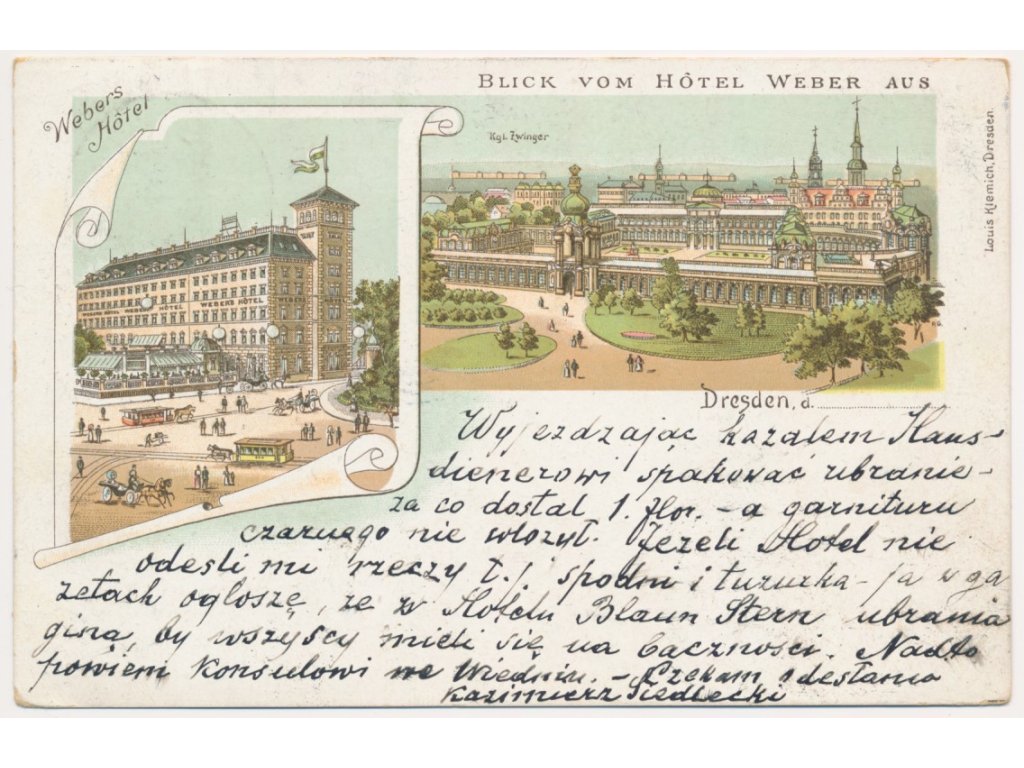 BLICK VOM HÔTEL WEBER AUS
Webers
Hôtel
Kgl. Zwinger
Louis Klemich, Dresden.
WEBERS HÔTEL
WEBERS HÔTEL
WEBER
Dresden, d.
Wyjezdzając kazałem Haus-
dienerowi spakować ubranie-
za co dostal 1. flor. - a garnituru
czarnego nie wlozyl. Jezeli Hotel nie
odesli mi rzeczy t.j. spodni i tuzurka - ja w ga
zetach ogloszę, ze z Hotelu Blaun Stern ubrania
giną, by wszyscy mieli się na baczności. Nadto
powiem Konsulowi we Wiedniu. - Czekam odesłania
Kazimierz Siedlecki